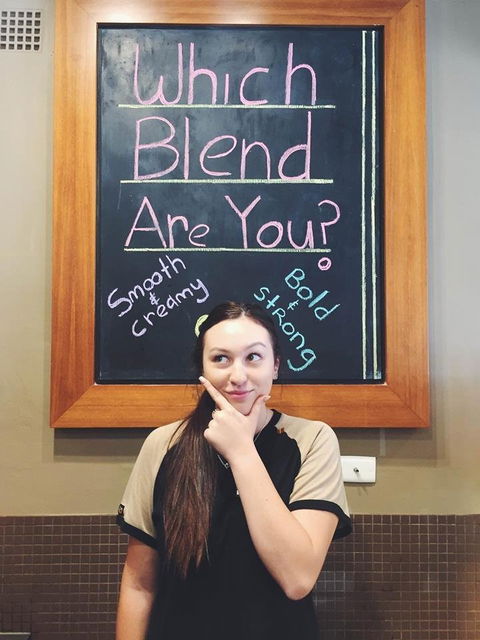 Which
Blend
Are You?
Smooth
&
creamy
Bold
&
Strong